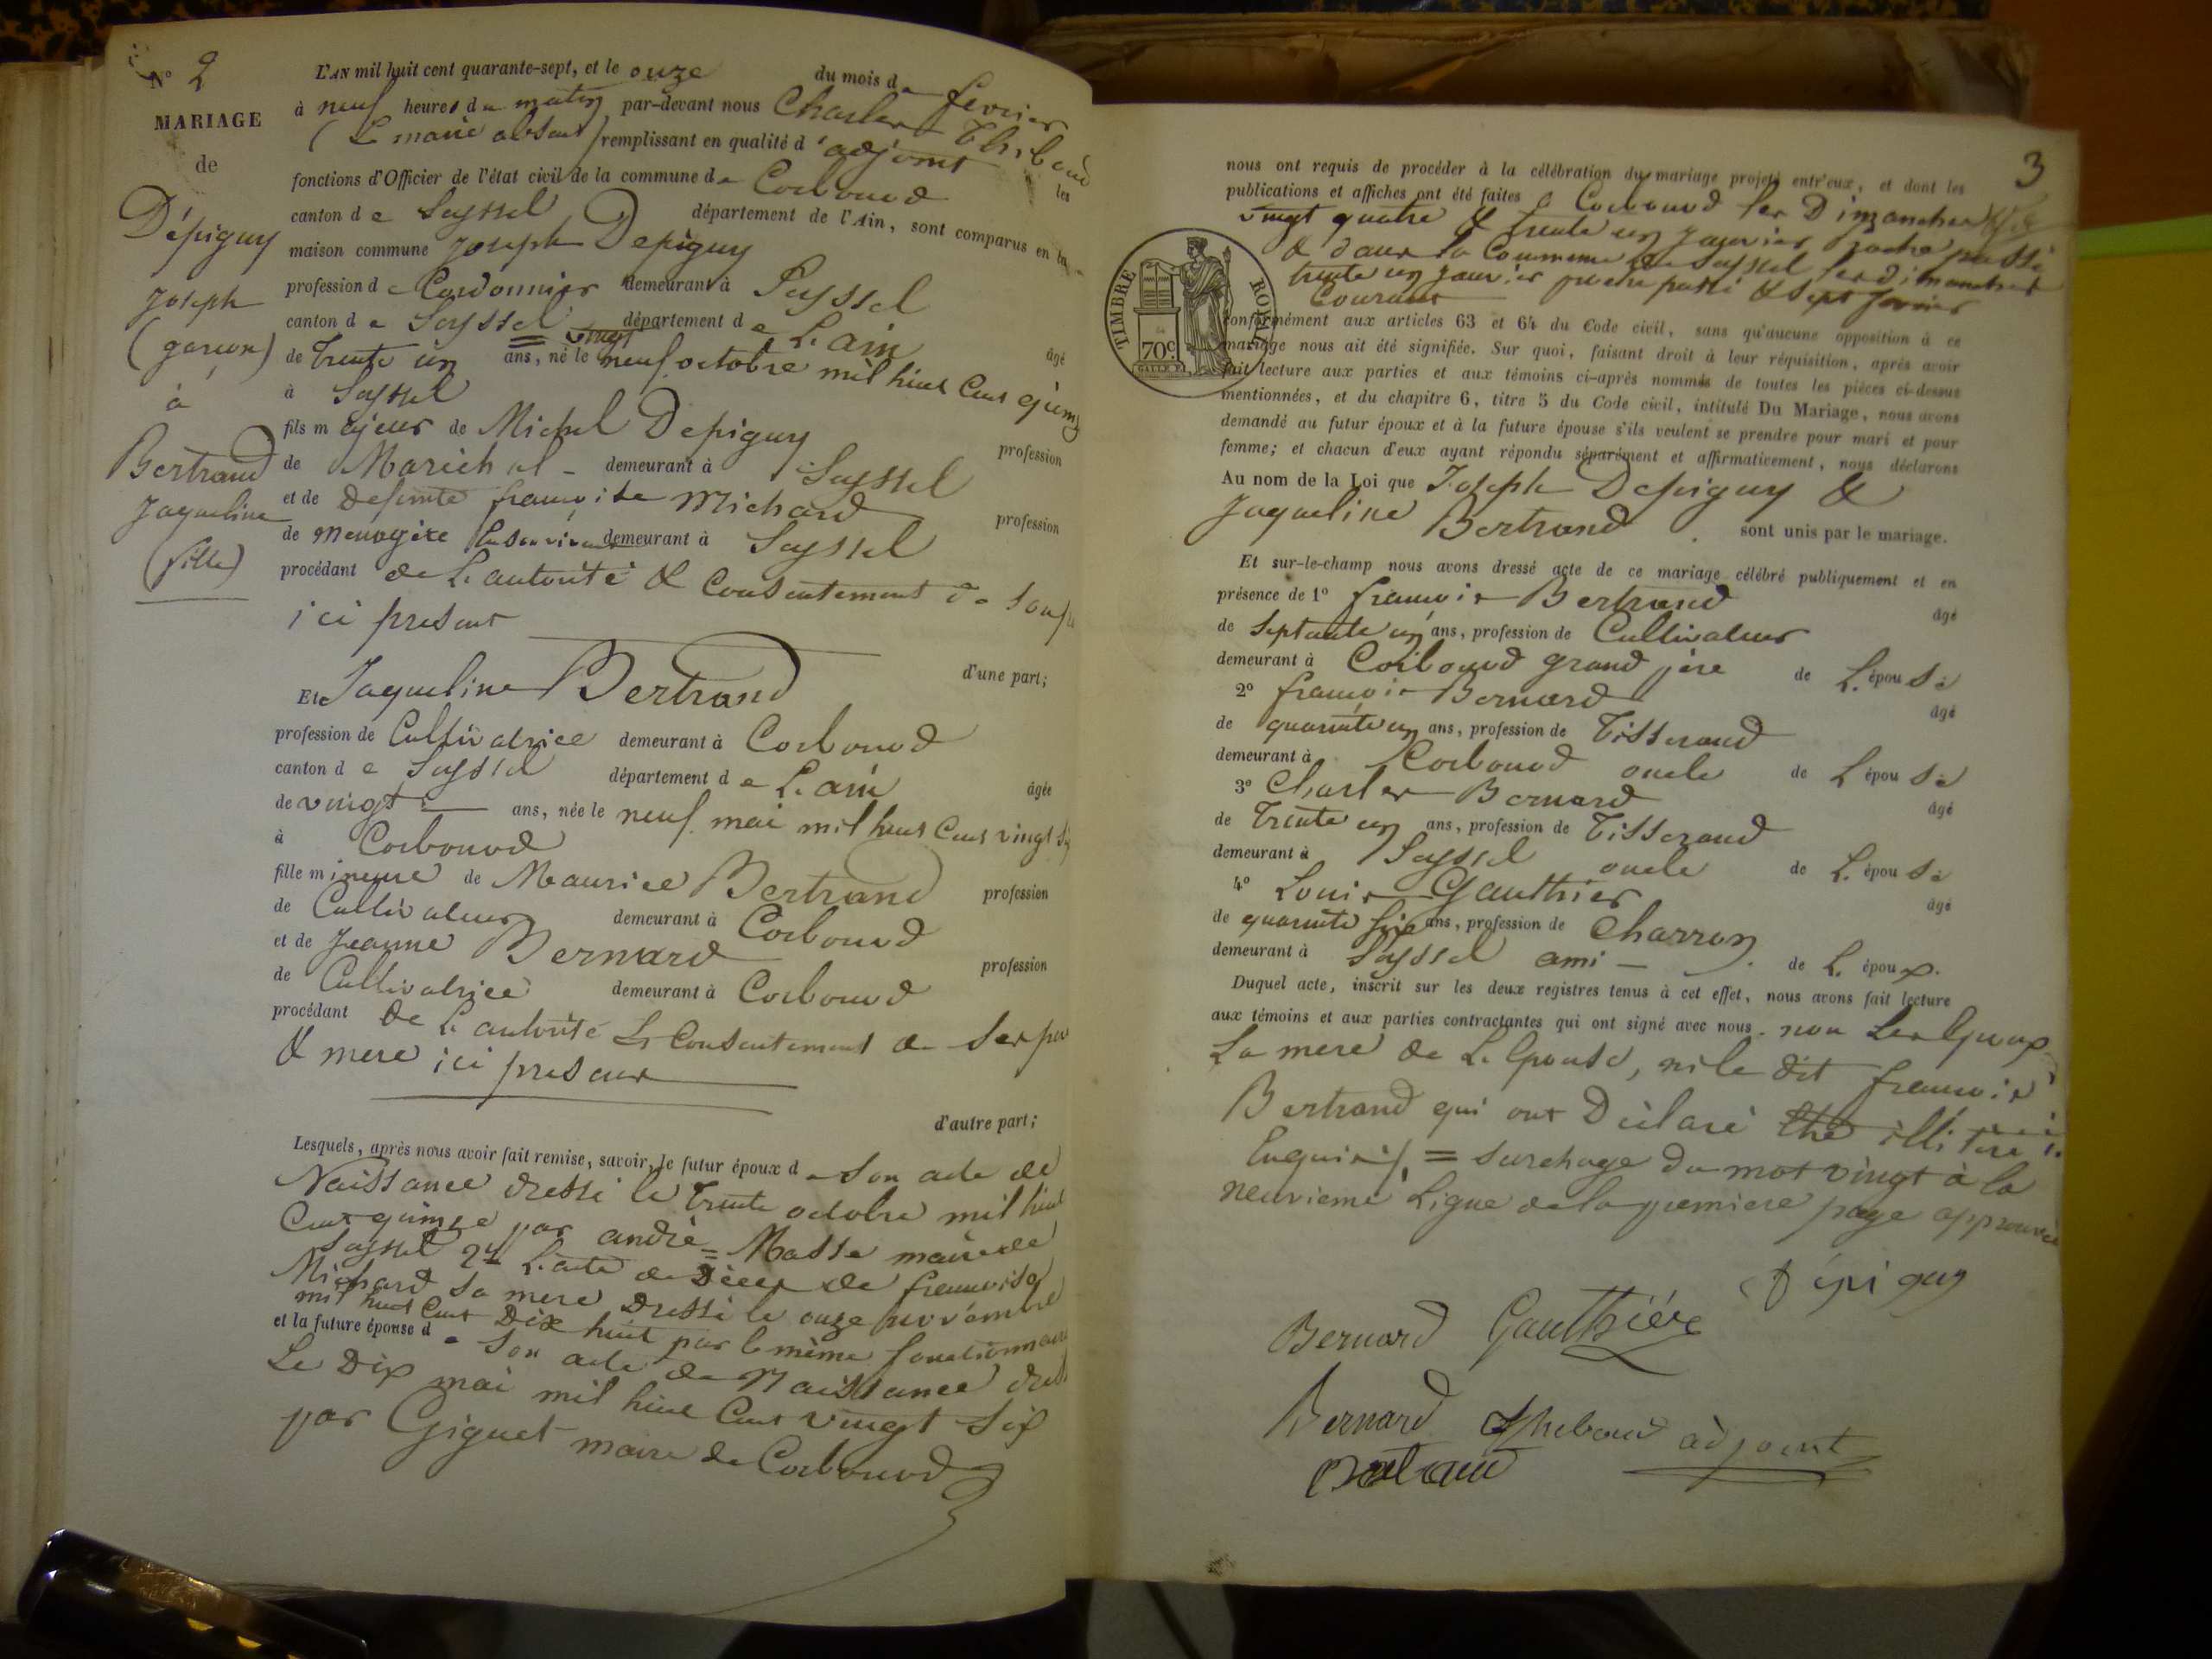 N° 2
MARIAGE
de
Dépigny
Joseph
(garçon)
à
Bertrand
Jaqueline
(fille)
L'AN mil huit cent quarante-sept, et le onze du mois de fevrier
à neuf heures du matin par-devant nous Charles Thiboud
(Le maire absent) remplissant en qualité d'adjoint les
fonctions d'Officier de l'état civil de la commune de Corbonod
canton de Seyssel département de l'Ain, sont comparus en la
maison commune Joseph Depigny
profession de Cordonnier demeurant à Seyssel
canton de Seyssel département de L'ain âgé
de trente un ans, né le vingt neuf octobre mil huit Cent quinze
à Seyssel
fils majeur de Michel Depigny profession
de Marichal - demeurant à Seyssel
et de defunte françoise Michard profession
de menagère demeurant à Seyssel
procédant de L'autorité & Consentement de son
ici present
d'une part;
Et Jaqueline Bertrand
profession de Cultivatrice demeurant à Corbonod
canton de Seyssel département de L'ain âgée
de vingt ans, née le neuf mai mil huit Cent vingt
à Corbonod
fille mineure de Maurice Bertrand profession
de Cultivateur demeurant à Corbonod
et de Jeanne Bernard profession
de Cultivatrice demeurant à Corbonod
procédant de L'autorité & Consentement de ses
& mere ici presens
d'autre part;
Lesquels, après nous avoir fait remise, savoir, le futur époux de son acte de
Naissance dressé le trente octobre mil huit
Cent quinze par andré = Masse maire de
Seyssel 2° L'acte de Décès de francoise
Michard sa mere dressé le onze novembre
mil huit Cent Dix huit par le même fonctionnaire
et la future épouse de son acte de Naissance
Le Dix mai mil huit Cent vingt Six
par Giguet maire de Corbonod
3
nous ont requis de procéder à la célébration du mariage projeté entr'eux, et dont les
publications et affiches ont été faites à Corbonod les Dimanches
vingt quatre & trente un janvier proche passé
& dans la Commune de Seyssel les dimanches
trente un janvier proche passé & sept fevrier
Courant
TIMBRE ROYAL
70c.
conformément aux articles 63 et 64 du Code civil, sans qu'aucune opposition à ce
mariage nous ait été signifiée. Sur quoi, faisant droit à leur réquisition, après avoir
fait lecture aux parties et aux témoins ci-après nommés de toutes les pièces ci-dessus
mentionnées, et du chapitre 6, titre 5 du Code civil, intitulé Du Mariage, nous avons
demandé au futur époux et à la future épouse s'ils veulent se prendre pour mari et pour
femme; et chacun d'eux ayant répondu séparément et affirmativement, nous déclarons
Au nom de la Loi que Joseph Depigny &
Jaqueline Bertrand sont unis par le mariage.
Et sur-le-champ nous avons dressé acte de ce mariage célébré publiquement et en
présence de 1° françois Bertrand âgé
de septante un ans, profession de Cultivateur
demeurant à Corbonod grand père de L'épouse
2° françois Bernard âgé
de quarante un ans, profession de Tisserand
demeurant à Corbonod oncle de L'épouse
3° Charles Bernard âgé
de Trente un ans, profession de Tisserand
demeurant à Seyssel oncle de L'épouse
4° Louis Gauthier âgé
de quarante six ans, profession de Charron
demeurant à Seyssel ami - de L'époux.
Duquel acte, inscrit sur les deux registres tenus à cet effet, nous avons fait lecture
aux témoins et aux parties contractantes qui ont signé avec nous. non
La mere de L'Epouse, ni le dit françois
Bertrand qui ont Déclaré illiteré
Enquis = surchage du mot vingt à la
neuvieme Ligne de la premiere page approuvée
Dépigny
Bernard Gauthière
Bernard Thiboud adjoint
Bertrand